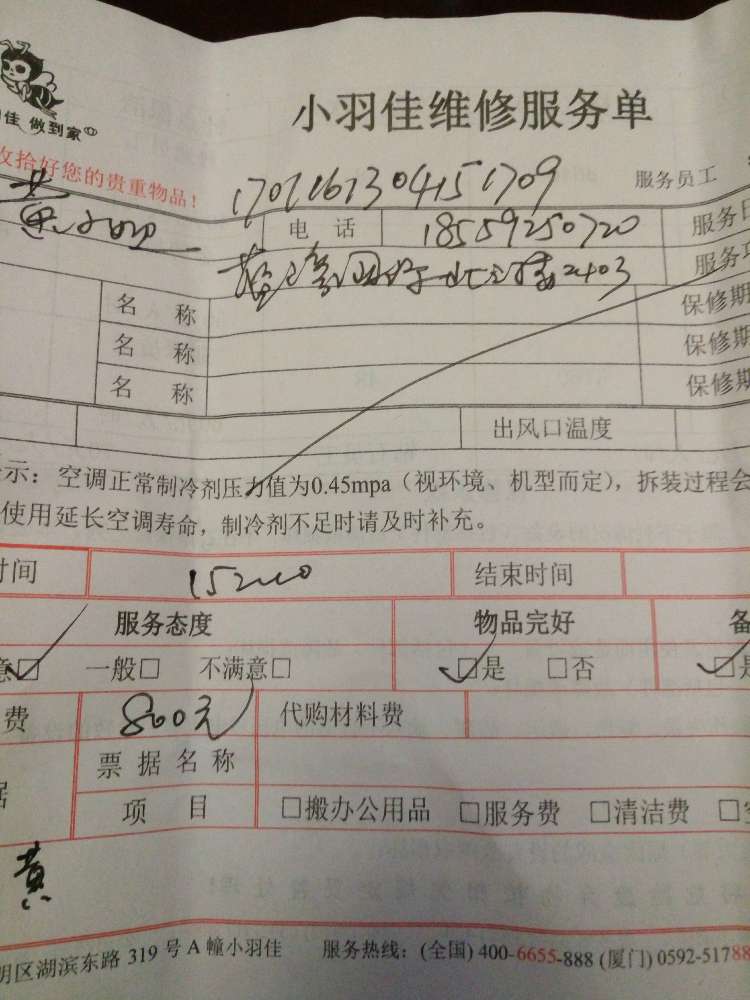 佳 做到家
小羽佳维修服务单
收拾好您的贵重物品！
1701161304151709 服务员工
黄 电 话 18559250720 服务日
2403 服务项
名 称 保修期
名 称 保修期
名 称 保修期
出风口温度
示：空调正常制冷剂压力值为0.45mpa（视环境、机型而定），拆装过程会
使用延长空调寿命，制冷剂不足时请及时补充。
时间 结束时间
服务态度 物品完好 备
意□ 一般□ 不满意□ □是 □否 □是
费 800元 代购材料费
票 据 名 称
据 项 目 □搬办公用品 □服务费 □清洁费
黄
明区湖滨东路 319 号 A 幢小羽佳 服务热线：(全国) 400-6655-888 (厦门) 0592-51788